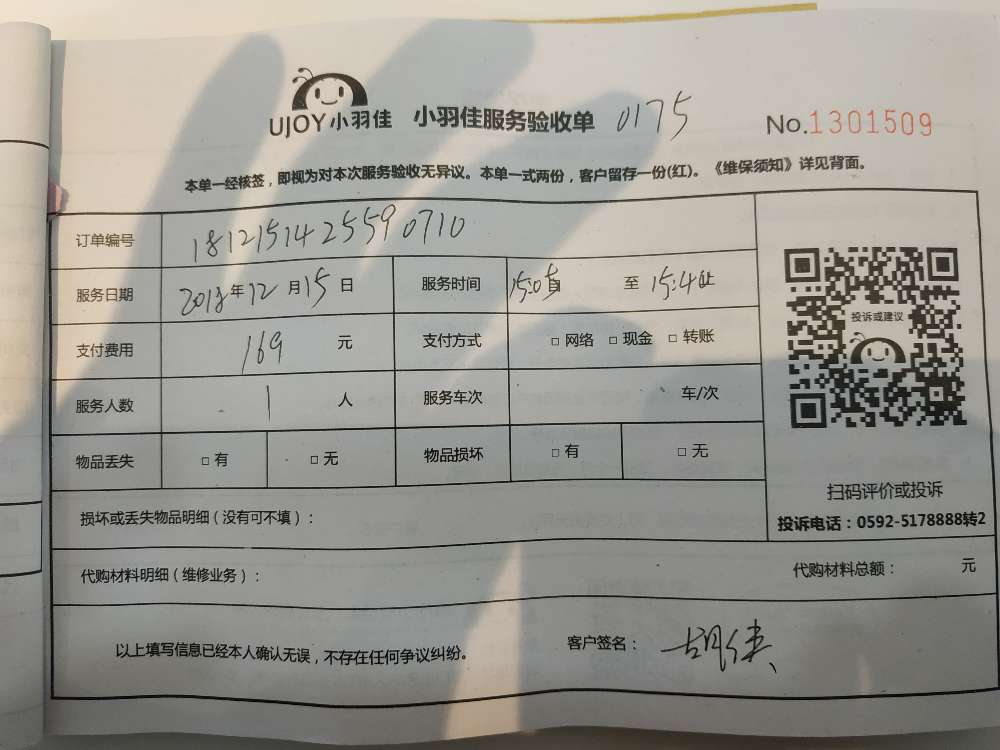 UJOY小羽佳 小羽佳服务验收单 0175 No.1301509
本单一经核签，即视为对本次服务验收无异议。本单一式两份，客户留存一份(红)。《维保须知》详见背面。
订单编号 18121514255590710
服务日期 2018年12月15日 服务时间 至
支付费用 169 元 支付方式 □ 网络 □ 现金 □ 转账
服务人数 1 人 服务车次 车/次
物品丢失 □ 有 □ 无 物品损坏 □ 有 □ 无
投诉或建议
扫码评价或投诉
投诉电话：0592-5178888转2
损坏或丢失物品明细（没有可不填）：
代购材料明细（维修业务）： 代购材料总额： 元
以上填写信息已经本人确认无误，不存在任何争议纠纷。 客户签名：